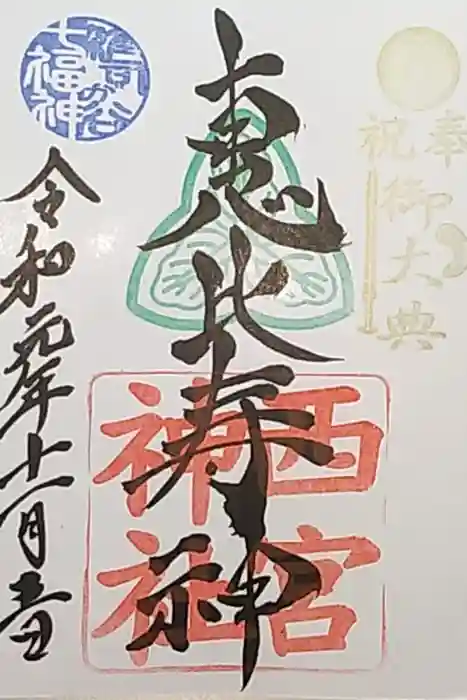 奉祝
御大典
恵比寿神
西宮
神社
七福神
令和元年十一月吉日